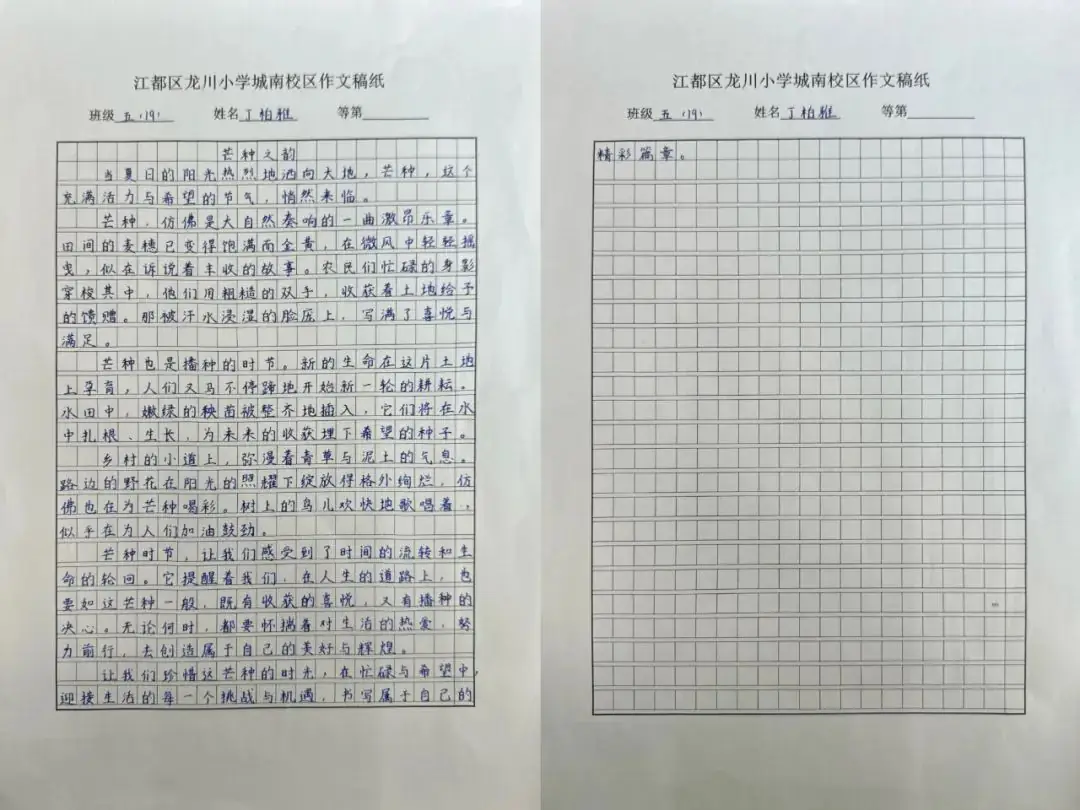 江都区龙川小学城南校区作文稿纸
班级 五(19) 姓名 丁柏雅 等第
芒种之韵
当夏日的阳光热烈地洒向大地，芒种，这个
充满活力与希望的节气，悄然来临。
芒种，仿佛是大自然奏响的一曲激昂乐章。
田间的麦穗已变得饱满而金黄，在微风中轻轻摇
曳，似在诉说着丰收的故事。农民们忙碌的身影
穿梭其中，他们用粗糙的双手，收获着土地给予
的馈赠。那被汗水浸湿的脸庞上，写满了喜悦与
满足。
芒种也是播种的时节。新的生命在这片土地
上孕育，人们又马不停蹄地开始新一轮的耕耘。
水田中，嫩绿的秧苗被整齐地插入，它们将在水
中扎根、生长，为未来的收获埋下希望的种子。
乡村的小道上，弥漫着青草与泥土的气息。
路边的野花在阳光的照耀下绽放得格外绚烂，仿
佛也在为芒种喝彩。树上的鸟儿欢快地歌唱着，
似乎在为人们加油鼓劲。
芒种时节，让我们感受到了时间的流转和生
命的轮回。它提醒着我们，在人生的道路上，也
要如这芒种一般，既有收获的喜悦，又有播种的
决心。无论何时，都要怀揣着对生活的热爱，努
力前行，去创造属于自己的美好与辉煌。
让我们珍惜这芒种的时光，在忙碌与希望中，
迎接生活的每一个挑战与机遇，书写属于自己的
江都区龙川小学城南校区作文稿纸
班级 五(19) 姓名 丁柏雅 等第
精彩篇章。